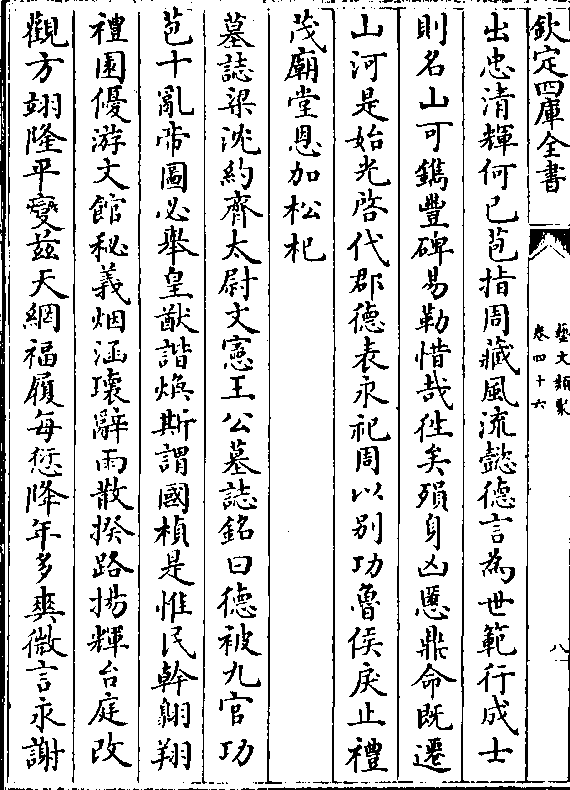 欽定四庫全書
藝文類聚
卷四十六
八
出忠清輝何已苞指周藏風流懿德言為世範行成士
則名山可鐫豐碑易勒惜哉徃矣殞身凶慝鼎命既遷
山河是始光啓代郡德表永祀周以别功魯侯戾止禮
茂廟堂恩加松杞
墓誌梁沈約齊太尉文憲王公墓誌銘曰德被九官功
苞十亂帝圖必舉皇猷諧煥斯謂國楨是惟民幹翺翔
禮圉優游文館秘義烟涵瓌辭雨散揆路揚輝台庭改
觀方翊隆平燮兹天網福履每愆降年多爽微言永謝